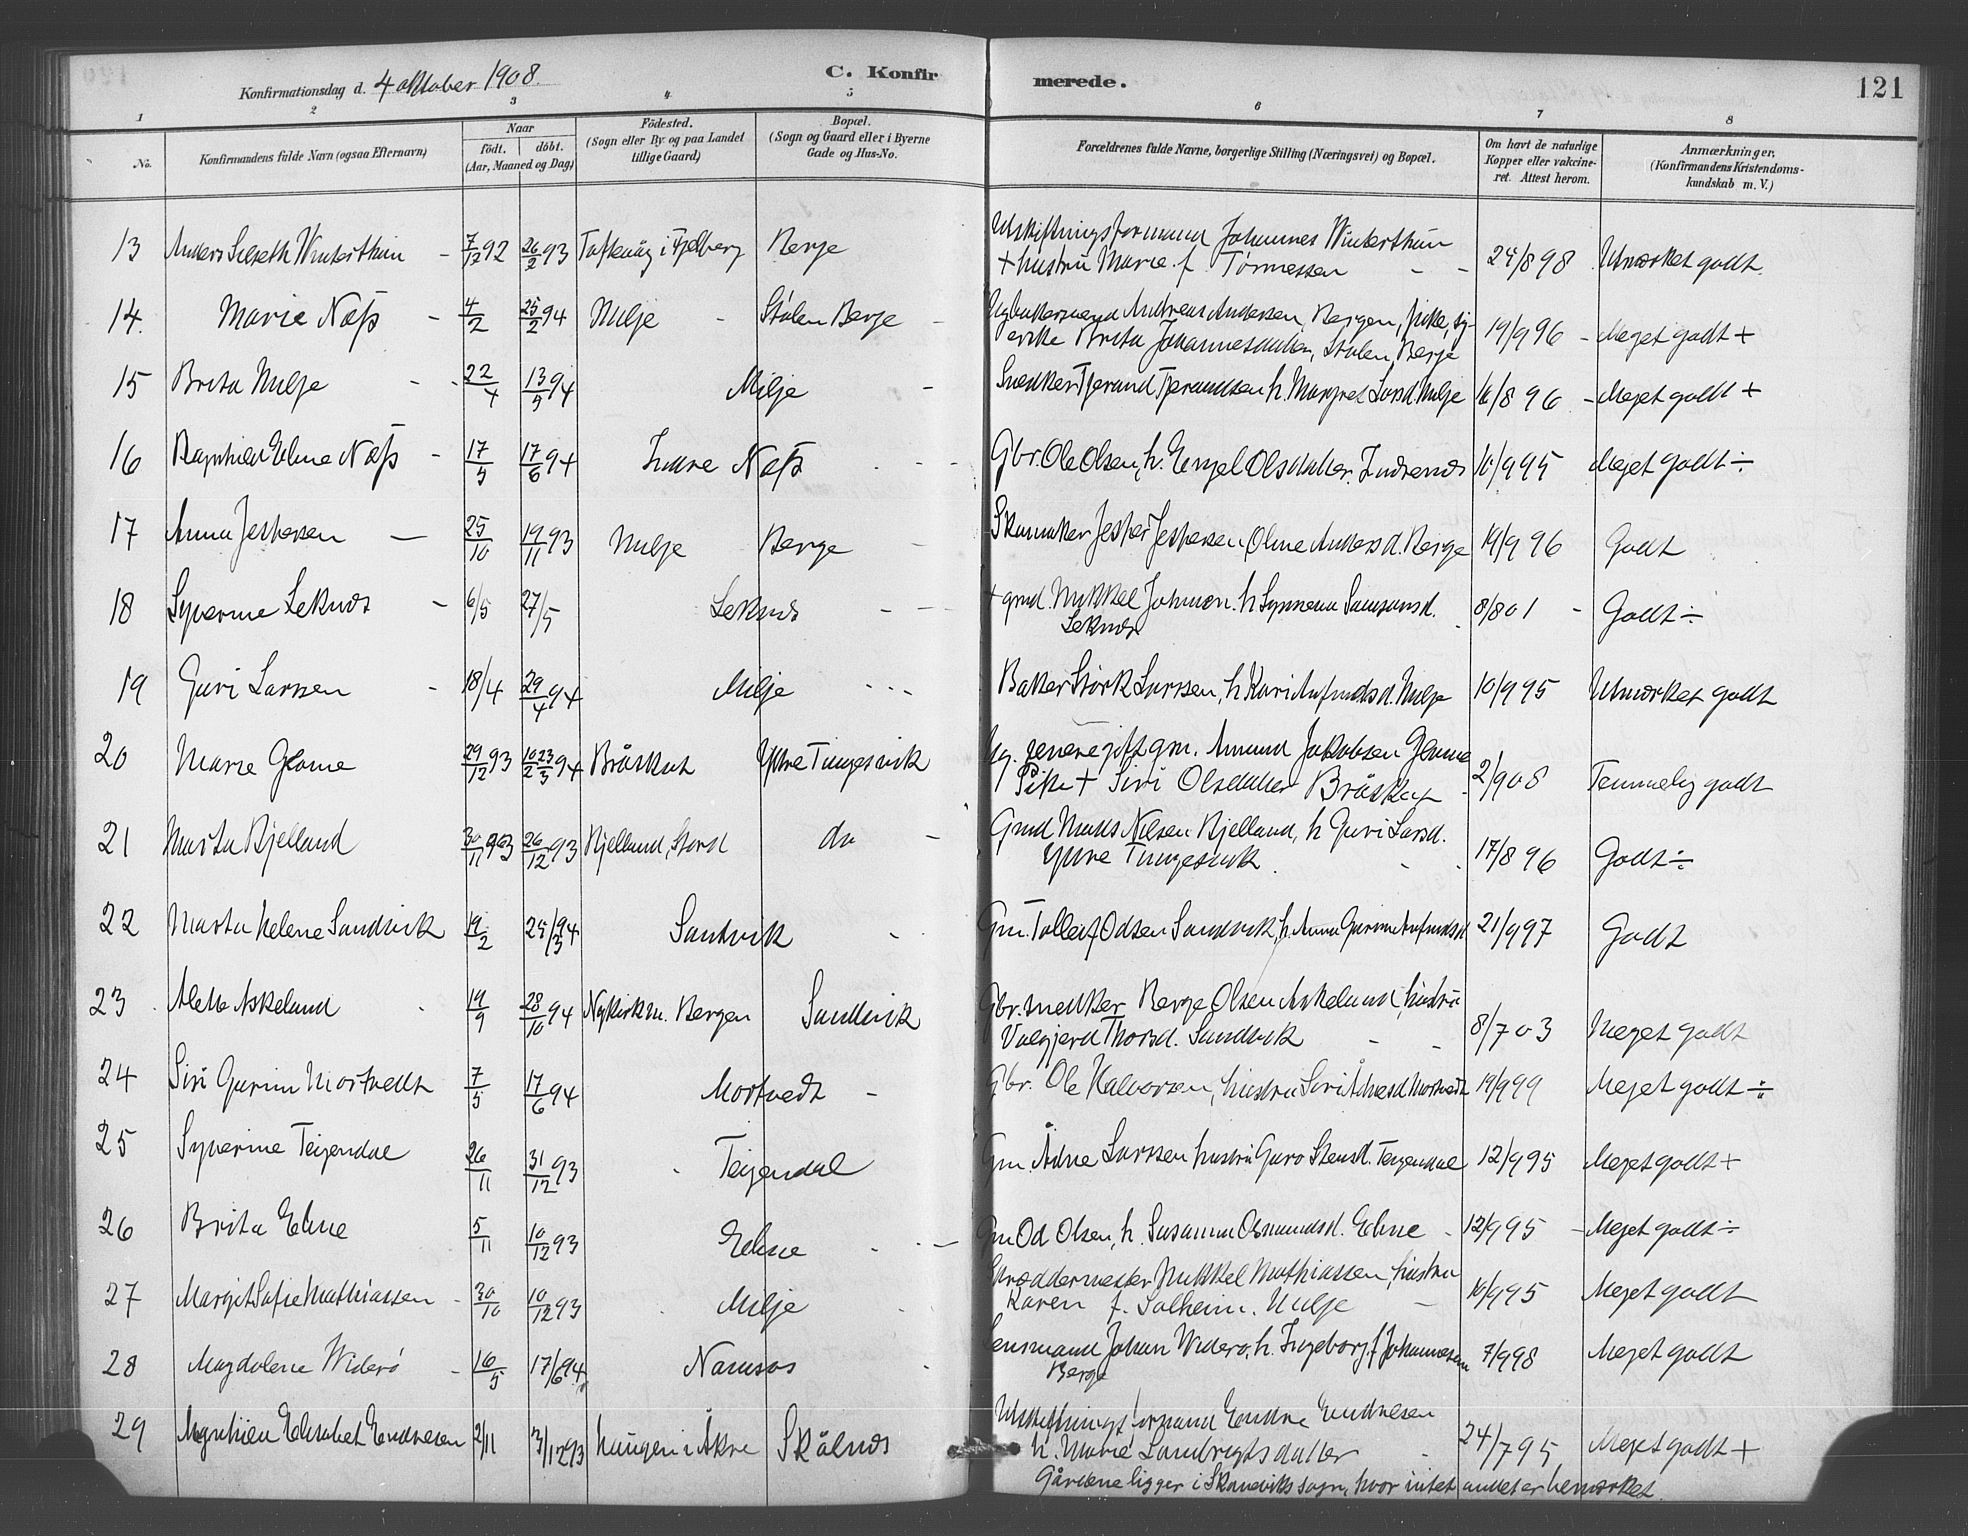 Konfirmationsdag d. 4 oktober 1908.
C. Konfirmerede.
121
1 2 3 4 5 6 7 8
No.
Konfirmandens fulde Navn (ogsaa Efternavn)
Naar
født. døbt.
(Aar, Maaned og Dag)
Fødested.
(Sogn eller By og paa Landet
tillige Gaard)
Bopæl.
(Sogn og Gaard eller i Byerne
Gade og Hus-No.
Forældrenes fulde Navne, borgerlige Stilling (Næringsvei) og Bopæl.
Om havt de naturlige
Kopper eller vakcine-
ret. Attest herom.
Anmærkninger.
(Konfirmandens Kristendoms-
kundskab m. V.)
13 Anders Winterthun 7/12 92 26/2 93 i Fjelberg Berge Udskiftningsformand Johannes Winterthun
+ hustru Marie f. Tønnessen 24/8 98 Utmærket godt.
14. Marie Næss 4/2 25/2 94 Milje Stølen Berge Ungkarlsmand Andreas Andersen, Bergen, pike, sy-
erske Brita Johannesdatter, Stølen, Berge 19/9 96 Meget godt +
15 Brita Milje 22/4 13/5 94 Milje Snedker Tjerand Tjerandsen h. Margret Larsd. Milje 16/8 96 Meget godt +
16 Elene Næss 17/5 17/6 94 Indre Næss Gbr. Ole Olsen, h. Engel Olsdatter. Indrenæs 16/9 95 Meget godt ÷
17 Anna Jespersen 25/10 19/11 93 Milje Berge Skomaker Jesper Jespersen, Oline Andersd. Berge 19/9 96 Godt
18 Syverine Leknes 6/5 27/5 Leknes + gmd. Mikkel Johnsen. h Synneva Samsonsd.
Leknes 8/8 01 Godt ÷
19 Guri Larssen 18/4 29/4 94 Milje Baker Størk Larssen, h Kari Anfindsd. Milje 10/9 95 Utmærket godt
20 Marie Glome 29/12 93 10/2 23/3 94 Bråskat Ytre Tungesvik Ug. senere gift gm. Amund Jakobsen Glome
Pike + Siri Olsdatter Bråskat 2/9 08 Temmelig godt
21 Marta Kjelland 30/11 93 26/12 93 Kjelland, Stord do Gmd Mads Nilsen Kjelland, h Guri Larsd.
Ytre Tungesvik 17/8 96 Godt ÷
22 Marta Helene Sandvik 19/2 25/3 94 Sandvik Gm. Tolleif Odsen Sandvik, h. Anna Gurine Anfindsd 21/9 97 Godt
23 Alette Askeland 19/9 28/10 94 Nykirken. Bergen Sandvik Gbr. snedker Berge Olsen Askeland, hustru
Valgjerd Thorsd. Sandvik 8/7 03 Meget godt
24 Siri Gurine Mortvedt 7/5 17/6 94 Mortvedt Gbr. Ole Halvorsen, hustru Siri Ådnesd Mortvedt 19/9 99 Meget godt ÷
25 Syverine Teigendal 26/11 31/12 93 Teigendal Gm. Ådne Larssen hustru Guro Stensd. Teigendal 12/9 95 Meget godt +
26 Brita Edne 5/11 10/12 93 Edne Gm Od Olsen, h. Susanna Osmundsd. Edne 12/9 95 Meget godt ÷
27 Margit Sofie Mathiassen 30/10 10/12 93 Milje Skræddermester Mikkel Mathiassen, hustru
Karen f. Solheim. Milje 10/9 95 Meget godt
28 Magdalene Widerø 16/5 17/6 94 Namsos Lensmand Johan Widerø, h. Ingeborg f Johannessen
Berge 7/9 98 Meget godt
29 Elisabet Endresen 2/11 3/12 93 Haugen i Åkre Skålnes Udskiftningsformand Endre Endresen
h. Marie Lambregtsdatter 24/7 95 Meget godt +
Gårdene ligger i Skånevik sogn, hvor intet andet er bemærket.